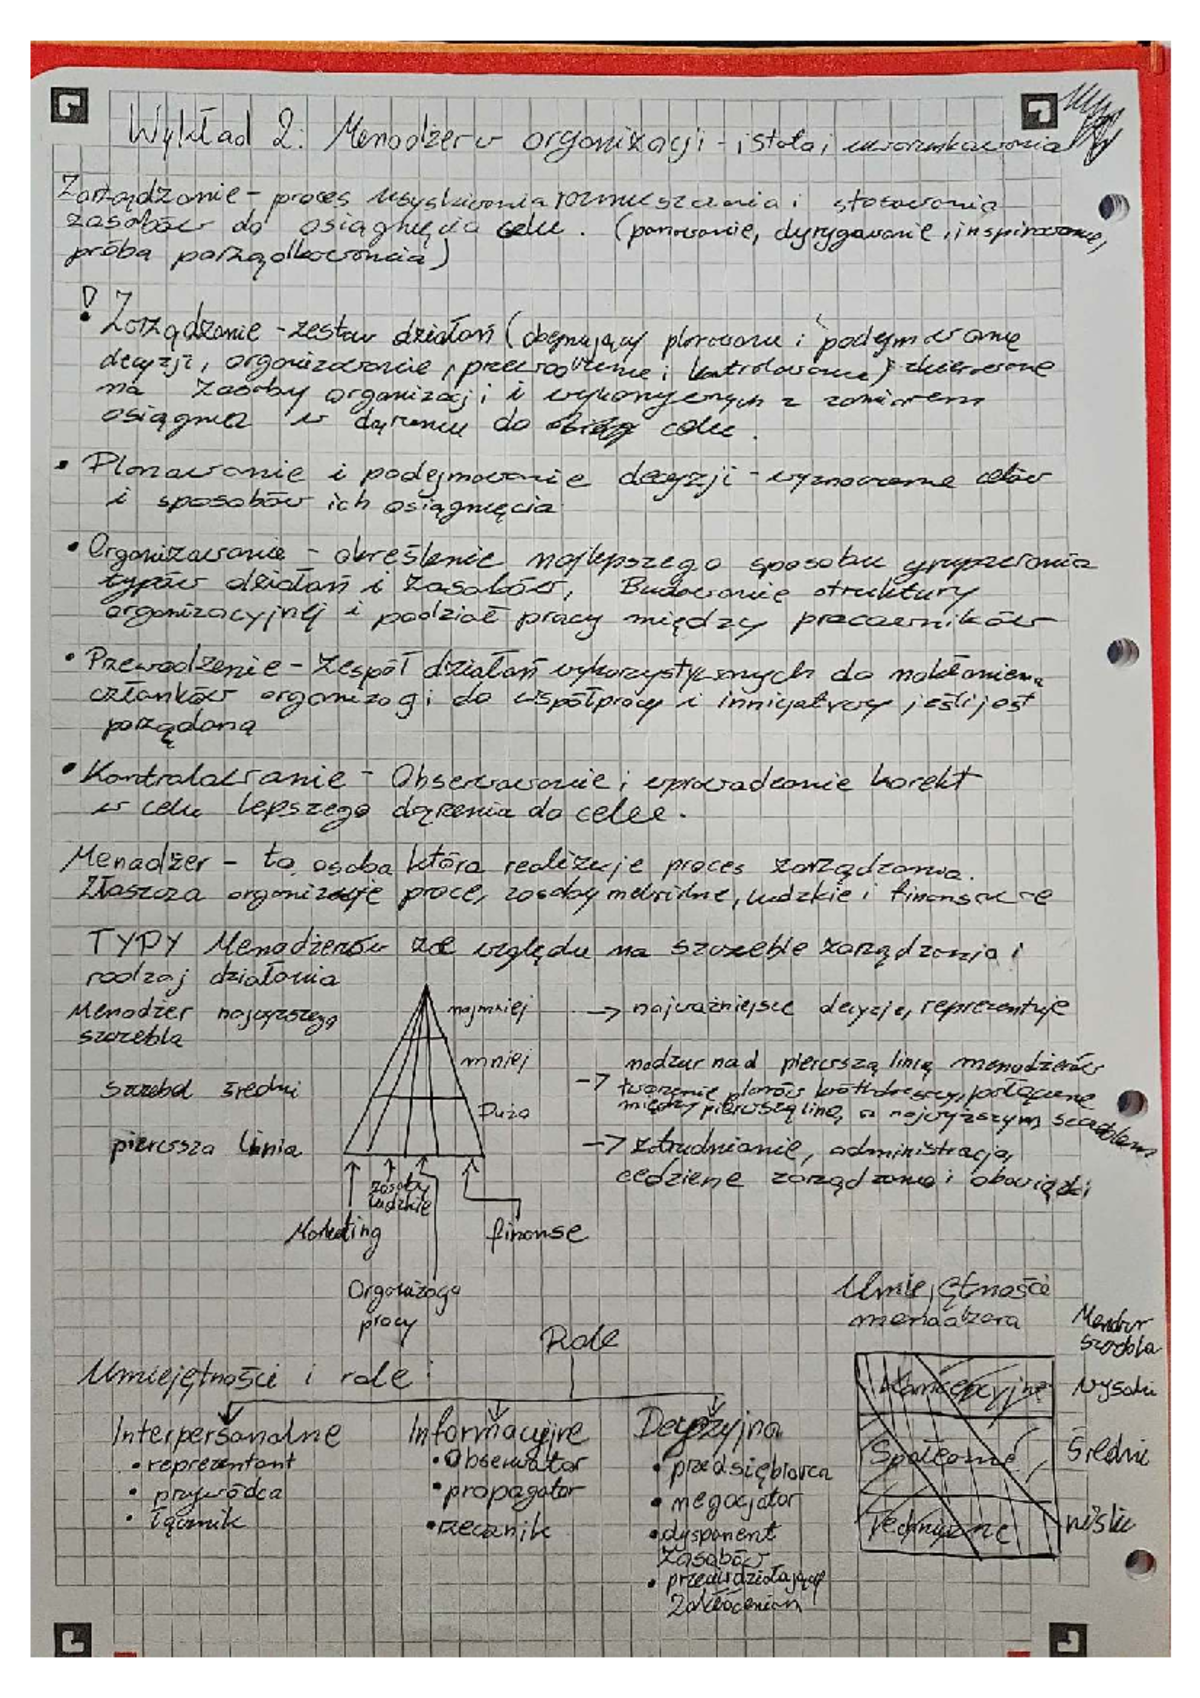 Wykład 2: Menadżer w organizacji - istota i uwarunkowania
Zarządzanie - proces uzyskiwania rozmieszczenia i stosowania
zasobów do osiągnięcia celu. (panowanie, dyrygowanie, inspirowanie,
próba porządkowania)
! Zarządzanie - zestaw działań (obejmujący planowanie i podejmowanie
decyzji, organizowanie, przewodzenie i kontrolowanie) skierowane
na zasoby organizacji i wykonywanych z zamiarem
osiągnia w dążeniu do celu.
• Planowanie i podejmowanie decyzji - wyznaczenie celów
i sposobów ich osiągnięcia
• Organizowanie - określenie najlepszego sposobu grupowania
typów działań i zasobów, Budowanie struktury
organizacyjnej i podział pracy między pracowników
• Przewodzenie - Zespół działań wykorzystywanych do nakłonienia
członków organizacji do współpracy i innicjatywy jeśli jest
porządana
• Kontrolowanie - Obserwowanie i wprowadzanie korekt
w celu lepszego dążenia do celu.
Menadżer - to osoba która realizuje proces zarządzania.
Złaszcza organizuje prace, zasoby materialne, ludzkie i finansowe
TYPY Menadżerów ze względu na szczeble zarządzania i
rodzaj działania
Menadżer najwyższego szczebla
najmniej
→ najważniejsze decyzje, reprezentuje
szczebel średni
mniej
→ nadzur nad pierwszą linią menadżerów
tworzenie planów połączenie
między pierwszą linią a najwyższym szczeblem
pierwsza linia
Dużo
→ zatrudnianie, administracja,
codziene zarządzanie i obowiązki
zasoby
ludzkie
Marketing
finanse
Organizacja
pracy
Umiejętności
menadżera
Menadżer
szczebla
Role
Umiejętności i role:
Interpersonalne
• reprezentant
• przywódca
• łącznik
Informacyjne
• Obserwator
• propagator
• rzecznik
Decyzyjna
• przedsiębiorca
• negocjator
• dysponent
zasobów
• przeciwdziałający
zakłóceniom
Koncepcyjne
Wysoki
Społeczne
Średni
Techniczne
niski